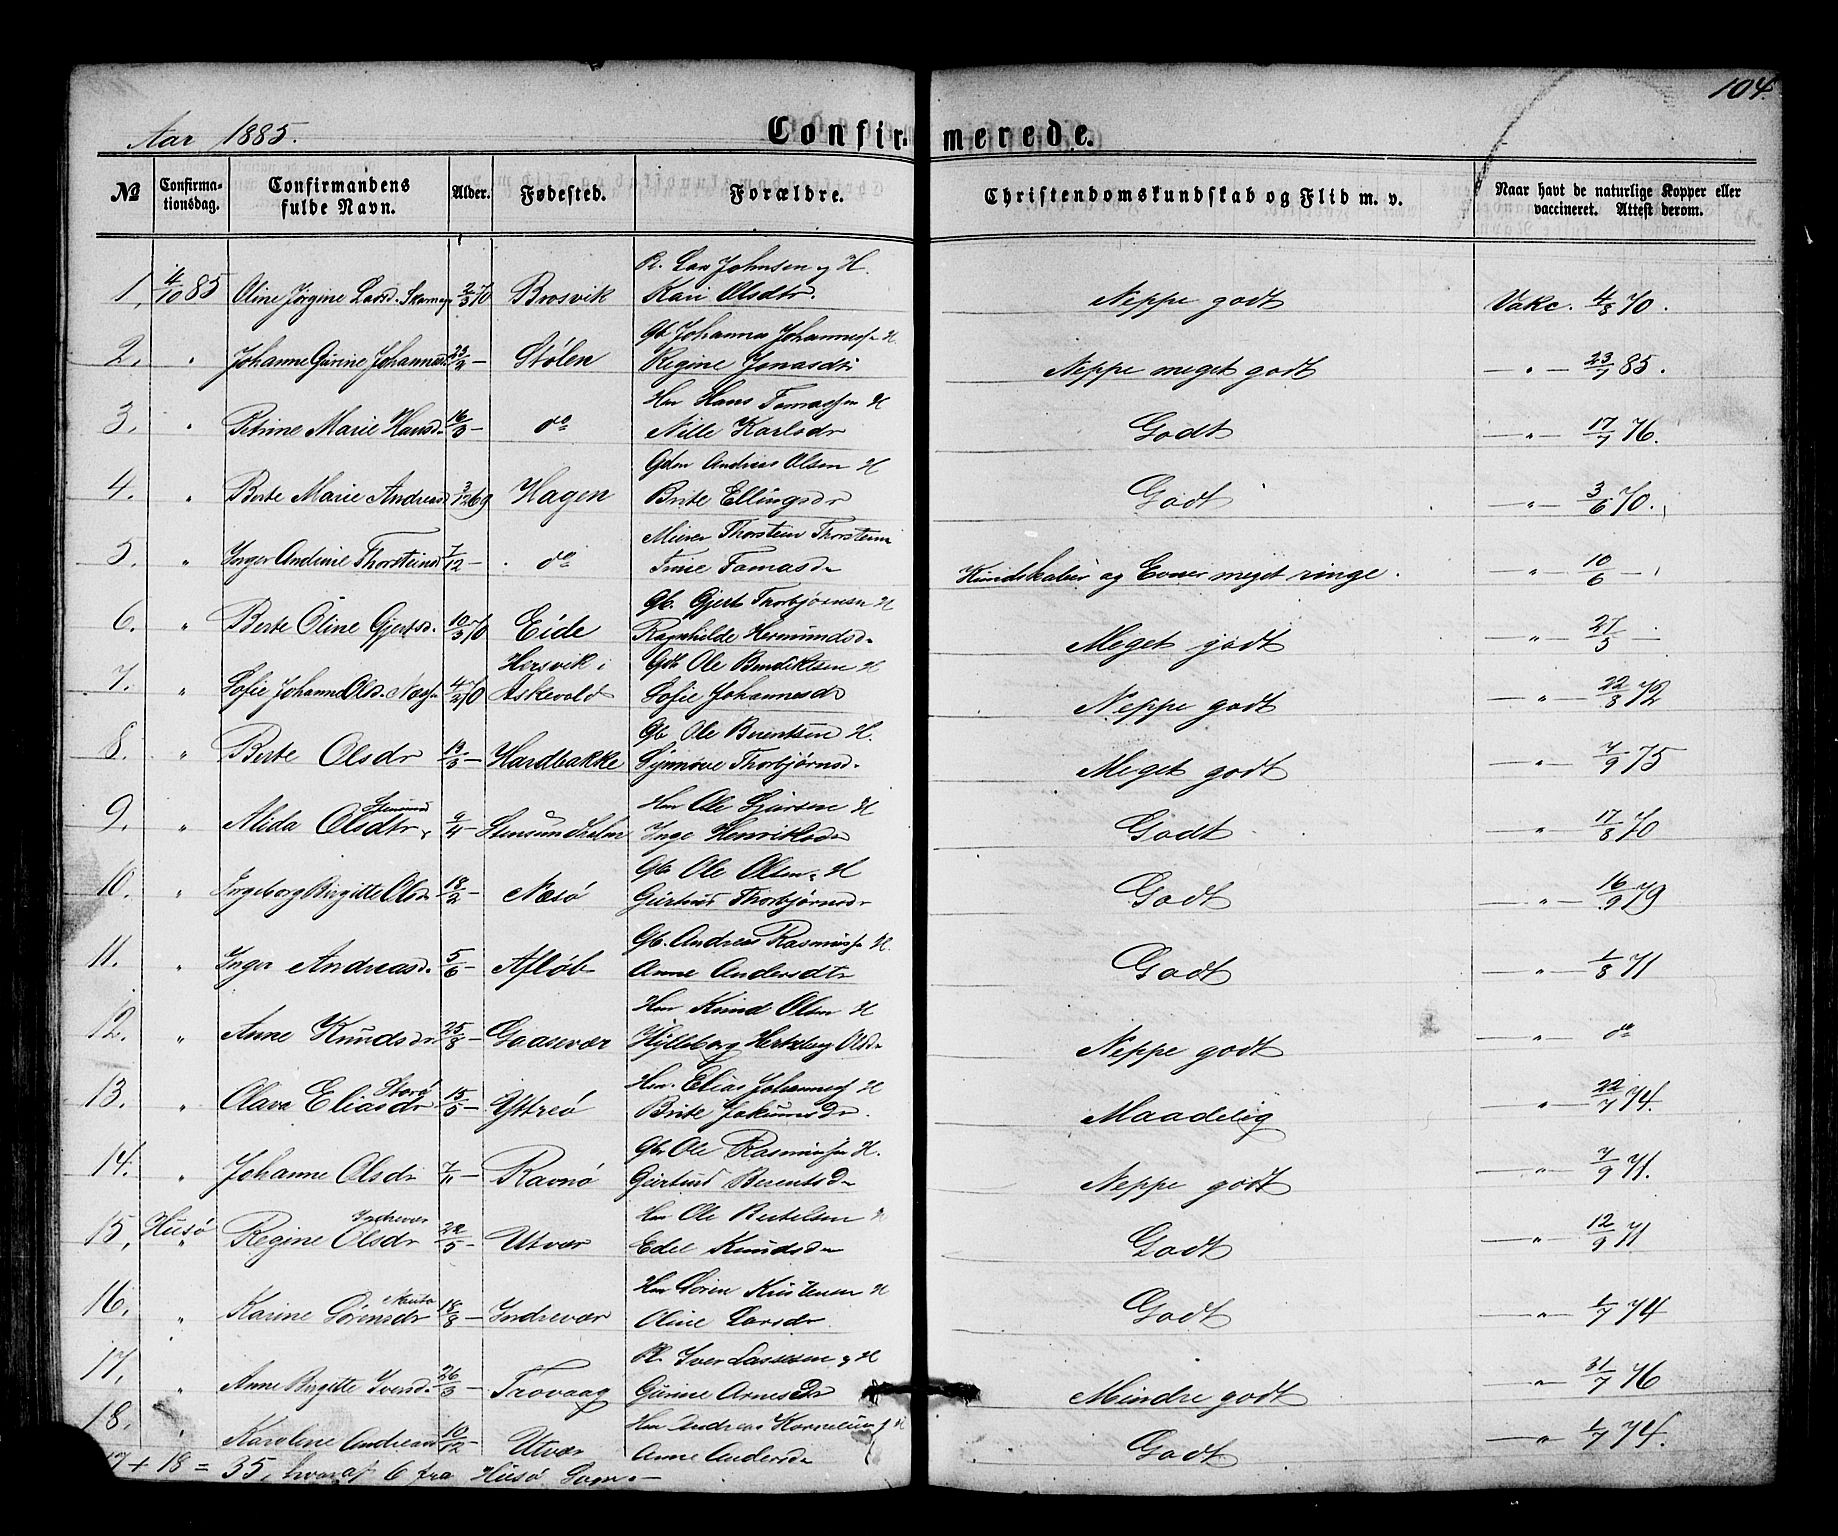 104.
Aar 1885.
Confirmerede.
No
Confirmationsdag.
Confirmandens fulde Navn.
Alder.
Fødested.
Forældre.
Christendomskundskab og Flid m. v.
Naar havt de naturlige Kopper eller vaccineret. Attest derom.
Lars Johnsen og H.
1. 4/10 85 Oline Jørgine Larsd. 2/3 70 Brosvik Kari Olsdtr. Neppe godt Vakc. 4/8 70.
Gb Johannes Johanness. H
2. " Johanne Gurine Johannesd. Stølen Regine Jonasdtr Neppe meget godt — " — 23/7 85.
Hm Hans Tomassen H
3. " Petrine Marie Hansd. 16/3 — do Nille Karlsdr Godt — " — 17/7 76.
Gdm Andreas Olsen H
4. " Berte Marie Andreasd 3/12 69 Hagen Brite Ellingsdr Godt — " — 3/6 70.
Thorstein Thorsteins
5. " Inger Andrine Thorsteinsd 7/12 — do Trine Tomasdr Kundskaber og Evner meget ringe. — " — 10/6 —
Gb. Gjert Thorbjørnsen H
6. " Berte Oline Gjertsd. 10/3 70 Eide Ragnhilde Hermundsdr Meget godt — " — 27/5 —
Hersvik i Gb Ole Bendiktsen H
7. " Sofie Johanne Olsd. 4/2 70 Askevold Sofie Johannesdr Neppe godt — " — 22/8 72
Gb Ole Berentsen H.
8. " Berte Olsdr 13/3 — Hardbakke Synnøve Thorbjørnsd. Meget godt — " — 7/9 75
Hm Ole Sjursen H
9. " Alida Olsdtr. 9/4 — Stensundholm Inge Henriksdr Godt — " — 17/8 70
Gb. Ole Olsen. H
10. " Ingeborg Birgitte Olsdr 18/2 — Næsø Gjertrud Thorbjørnsdr Godt — " — 16/9 79
Gb. Andreas Rasmuss. H.
11. " Inger Andreasd. 5/6 — Afløb Anne Andersdtr Godt — " — 1/8 71
Hm Knud Olsen H
12. " Anne Knudsdr 25/8 — Gaasevær Olsdr Neppe godt — " — do
Hm. Elias Johanness H
Storø
13. " Olava Eliasdr 15/5 — Yttreø Brite Maadelig — " — 22/7 74.
Gb Ole Rasmussen H.
14. " Johanne Olsdr 7/11 — Ravnø Gjertrud Berentsdr Neppe godt — " — 7/9 71.
Indrevær Hm Ole Bertelsen H
15. Husø " Regine Olsdr 22/5 — Utvær Edel Knudsdr Godt — " — 12/9 71
Hm Søren Kristensen H
16. " Karine Sørensdr 18/8 — Indrevær Oline Larsdr. Godt — " — 1/7 74
Pl. Iver Larssen og H
17. " Anne Birgitte Iversd. 26/3 — Trovaag Gurine Arnesdr Mindre godt — " — 31/7 76
Hm Andreas Korneliuss H
18. " Karoline Andreasd 10/12 — Utvær Anne Andersdr Godt — " — 1/7 74.
17 + 18 = 35, hvoraf 6 fra Husø Sogn.